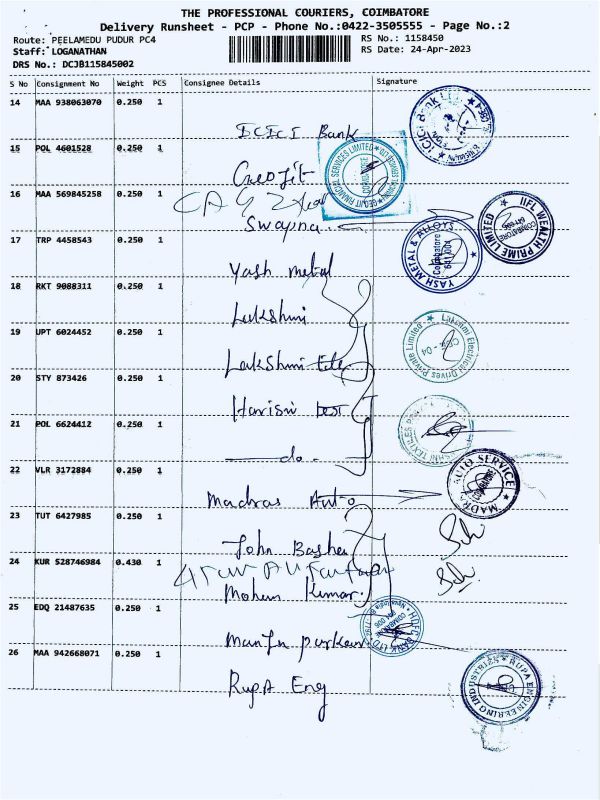 THE PROFESSIONAL COURIERS, COIMBATORE
Delivery Runsheet - PCP - Phone No.:0422-3505555 - Page No.:2
Route: PEELAMEDU PUDUR PC4
RS No.: 1158450
Staff: LOGANATHAN
RS Date: 24-Apr-2023
DRS No.: DCJB115845002
S No Consignment No Weight PCS Consignee Details Signature
14 MAA 938063070 0.250 1
ICICI Bank
ICICI BANK LTD
15 POL 4601528 0.250 1
GEOJIT FINANCIAL SERVICES LIMITED
COIMBATORE
16 MAA 569845258 0.250 1
Swapna
IIFL WEALTH PRIME LIMITED
17 TRP 4458543 0.250 1
Yash Metal
YASH METAL & ALLOYS
Coimbatore
641 004
18 RKT 9088311 0.250 1
Lakshmi
19 UPT 6024452 0.250 1
Lakshmi Ele
Lakshmi Electrical Drives Private Limited
CBE - 04
20 STY 873426 0.250 1
21 POL 6624412 0.250 1
do
22 VLR 3172884 0.250 1
Madras Auto
MADRAS AUTO SERVICE
23 TUT 6427985 0.250 1
John
24 KUR 528746984 0.430 1
Mohan Kumar
25 EDQ 21487635 0.250 1
HDFC BANK LTD
26 MAA 942668071 0.250 1
Rupa Eng
RUPA ENGINEERING INDUSTRIES